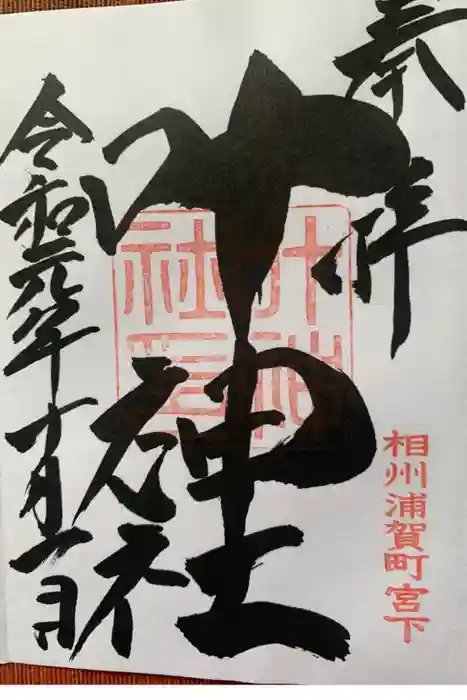 奉拝
叶神社
叶神
社印
相州浦賀町宮下
令和元年十月一日